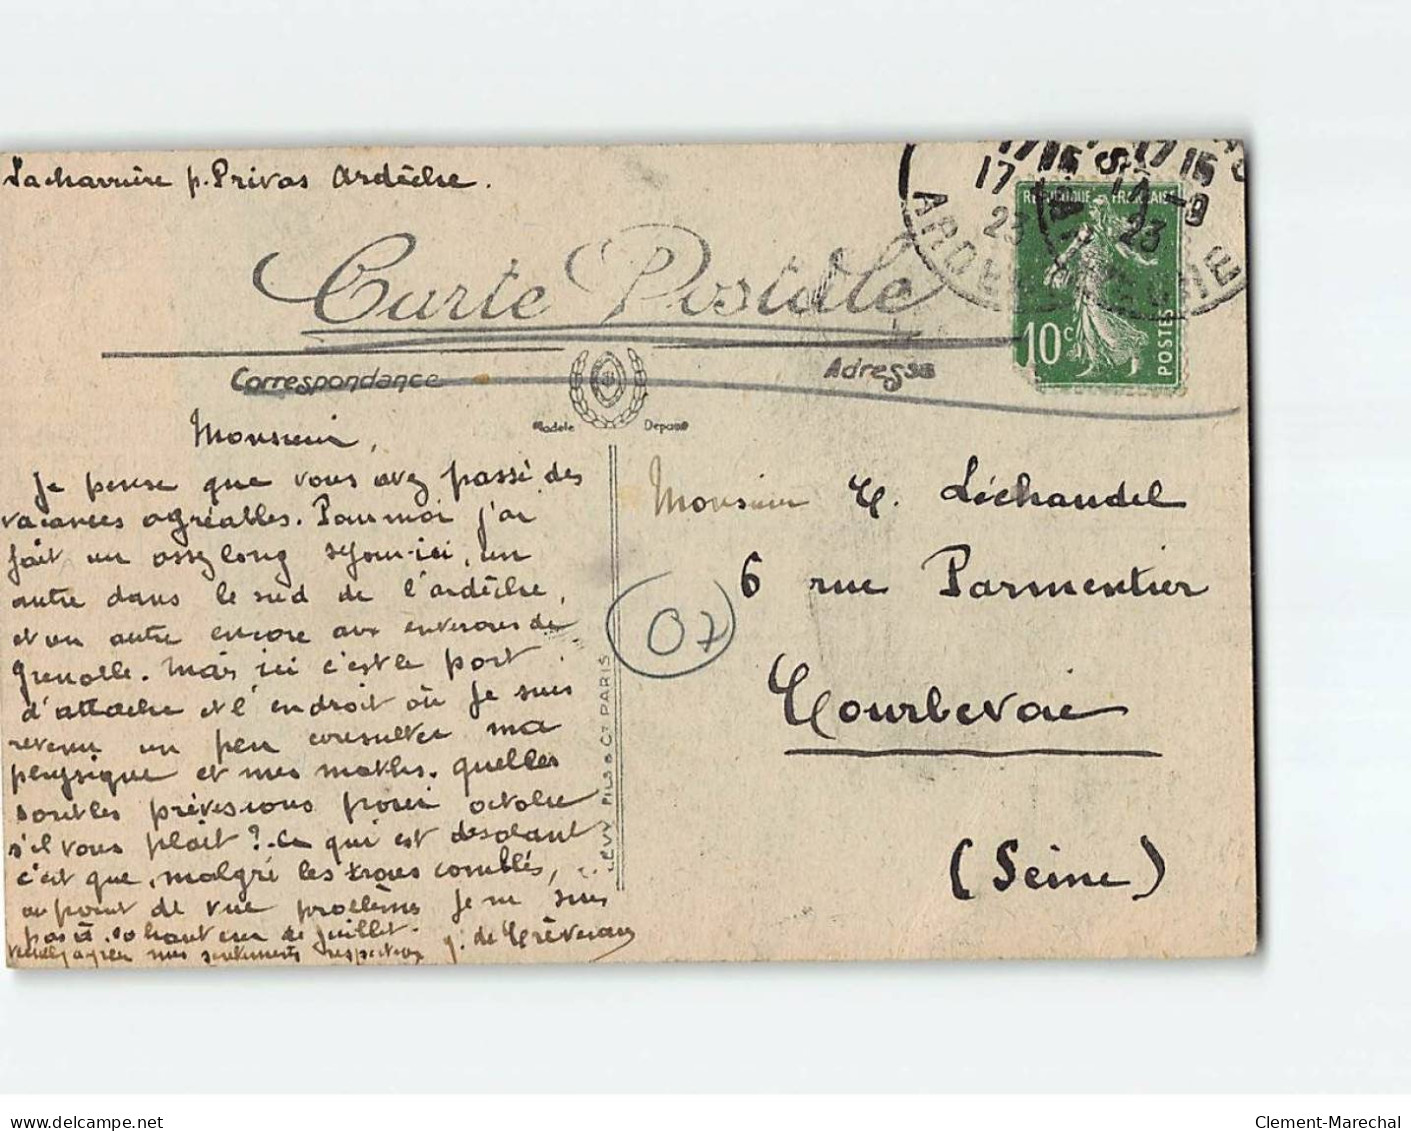 Lacharrière p. Privas Ardèche.
17 15
17 15
17
17 - 9
23
23
ARDECHE
REPUBLIQUE FRANCAISE
10c
POSTES
Carte Postale
Correspondance
Adresse
Modèle Déposé
Monsieur,
Je pense que vous avez passé des
vacances agréables. Pour moi j'ai
fait un assez long séjour ici, un
autre dans le sud de l'ardèche,
et un autre encore aux environs de
Grenoble. Mais ici c'est le port
d'attache et l'endroit où je suis
revenu un peu consulter ma
physique et mes maths. quelles
sont les prévisions pour octobre
s'il vous plait ? Ce qui est désolant
c'est que, malgré les trous comblés,
au point de vue problèmes je ne suis
pas à la hauteur de juillet.
Veuillez agréer mes sentiments respectueux J. de
LEVY FILS & Cie PARIS
Monsieur C. Léchaudel
6 rue Parmentier
Courbevoie
(Seine)
07
www.delcampe.net
Clement-Marechal